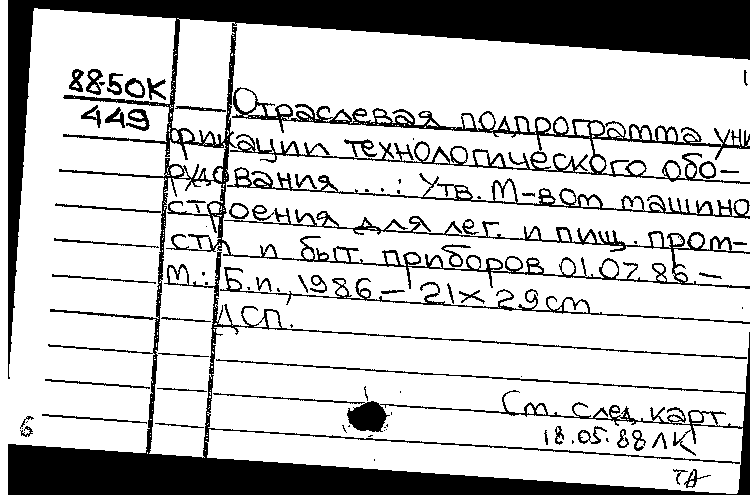 1
88-50К
449
Отраслевая подпрограмма уни
фикации технологического обо-
рудования ...: Утв. М-вом машино
строения для лег. и пищ. пром-
сти и быт. приборов 01.07.86.-
М.: Б.и., 1986.- 21×29 см
ДСП.
См. след. карт.
18.05.88 ЛК
ТА
6